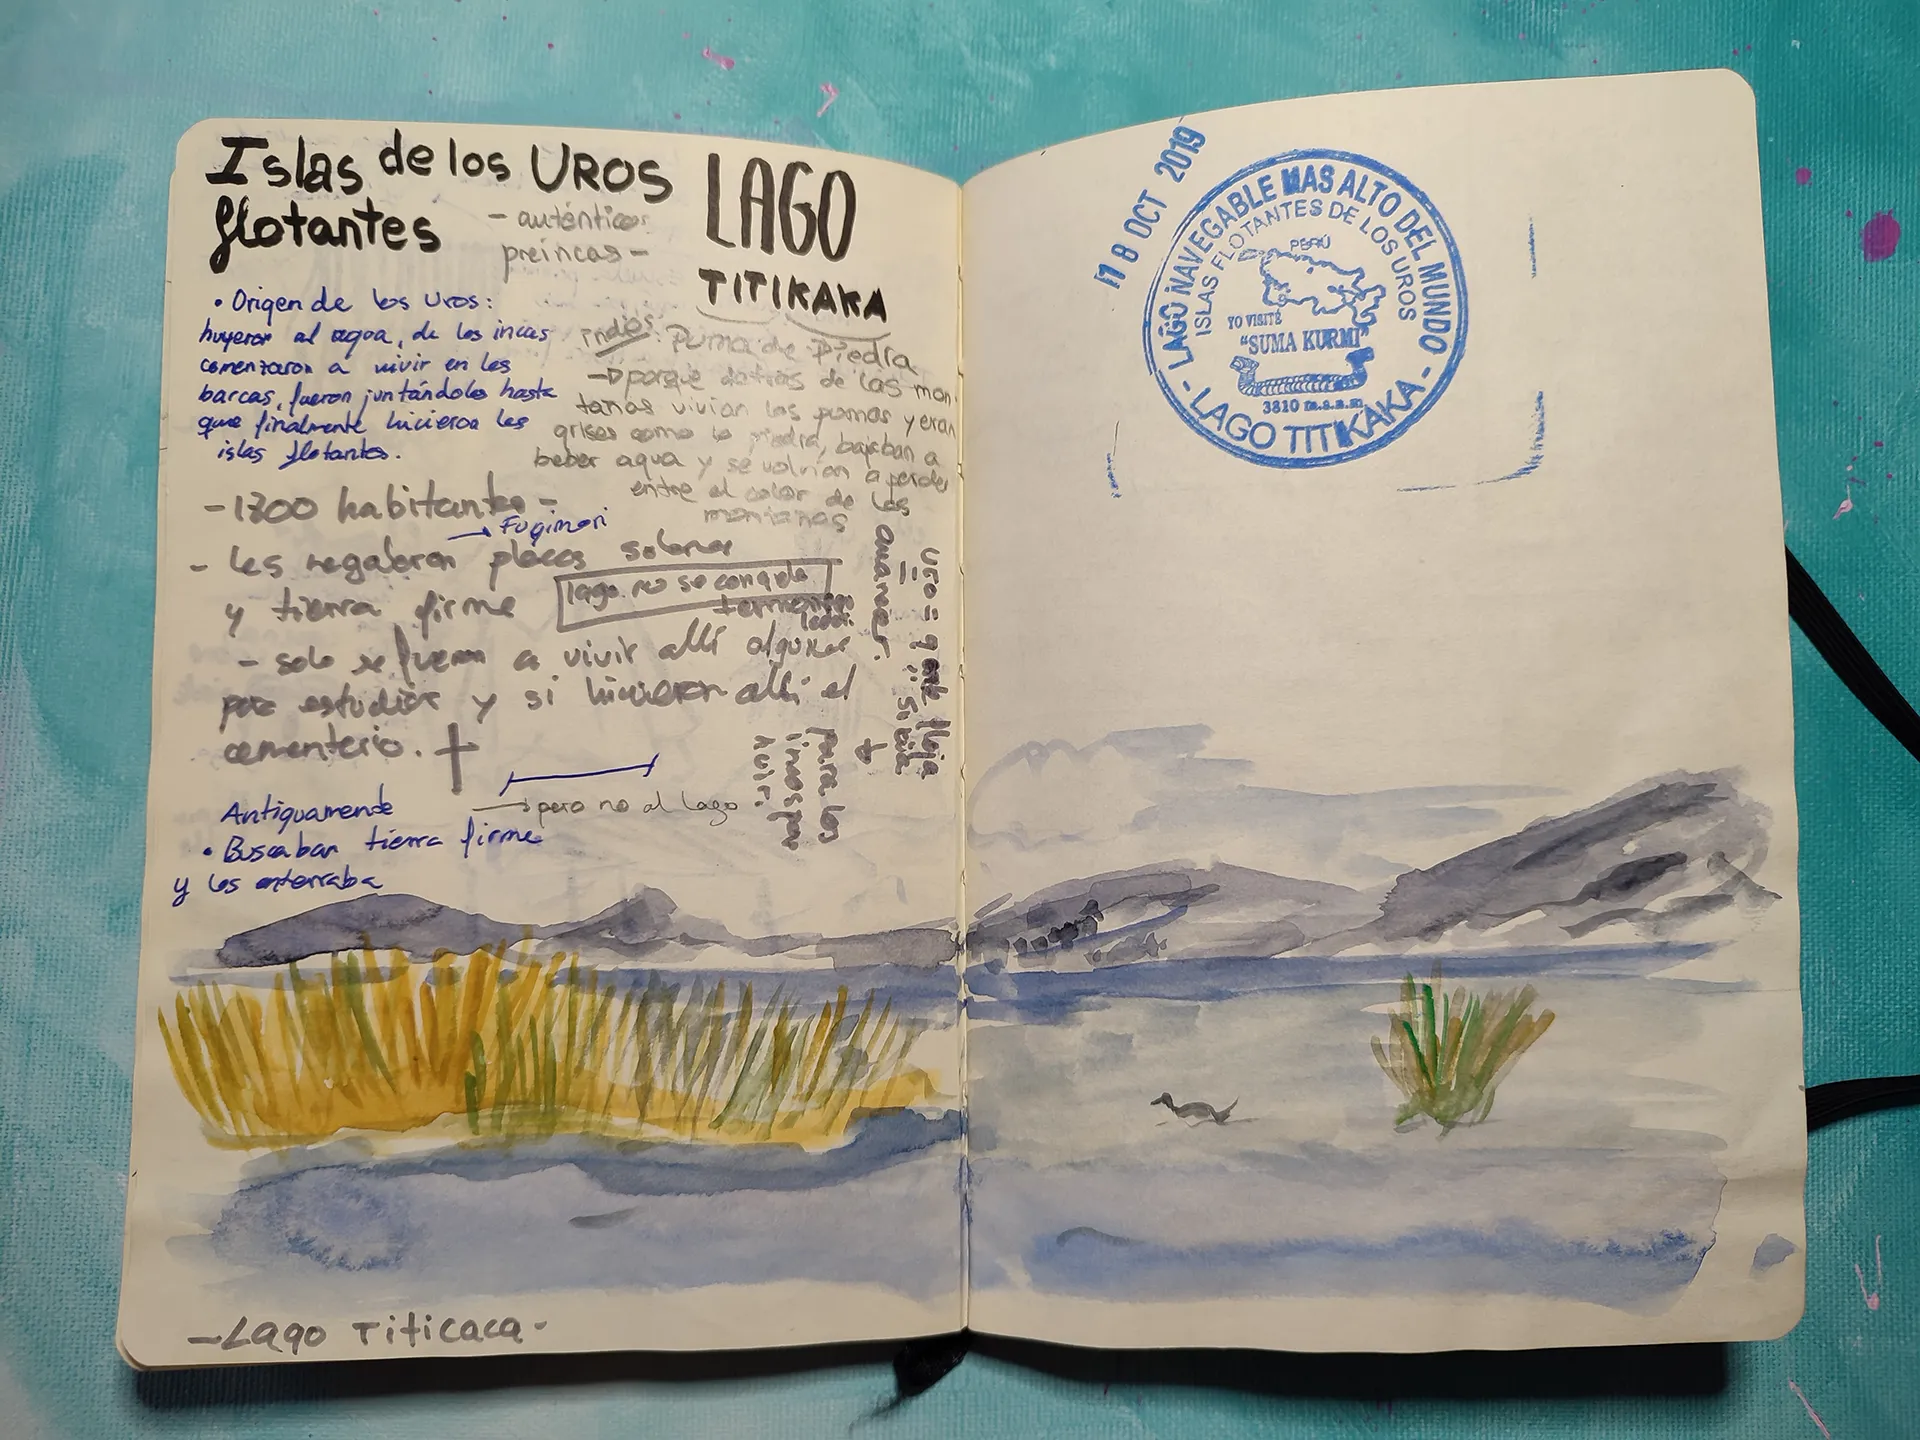 Islas de los UROS
flotantes
- auténticos
preincas -
LAGO
TITIKAKA
• Origen de los uros:
huyeron al agua, de los incas
comenzaron a vivir en las
barcas, fueron juntándolas hasta
que finalmente hicieron las
islas flotantes.
indios: Puma de Piedra
→ porque detrás de las mon
tañas vivían los pumas y eran
grises como la piedra, bajaban a
beber agua y se volvían a perder
entre el color de las
montañas
- 1300 habitantes -
→ Fugimori
- les regalaron placas solares
y tierra firme
lago no se congela
- solo se fueron a vivir allí algunos
para estudiar y si hicieron allí el
cementerio.
amanecer.
para los
incas por
huir.
→ pero no al lago
Antiguamente
• Buscaban tierra firme
y los enterraba
- Lago Titicaca -
18 OCT 2019
- LAGO NAVEGABLE MAS ALTO DEL MUNDO -
ISLAS FLOTANTES DE LOS UROS
PERÚ
YO VISITÉ
"SUMA KURMI"
3810 m.s.n.m
LAGO TITIKAKA